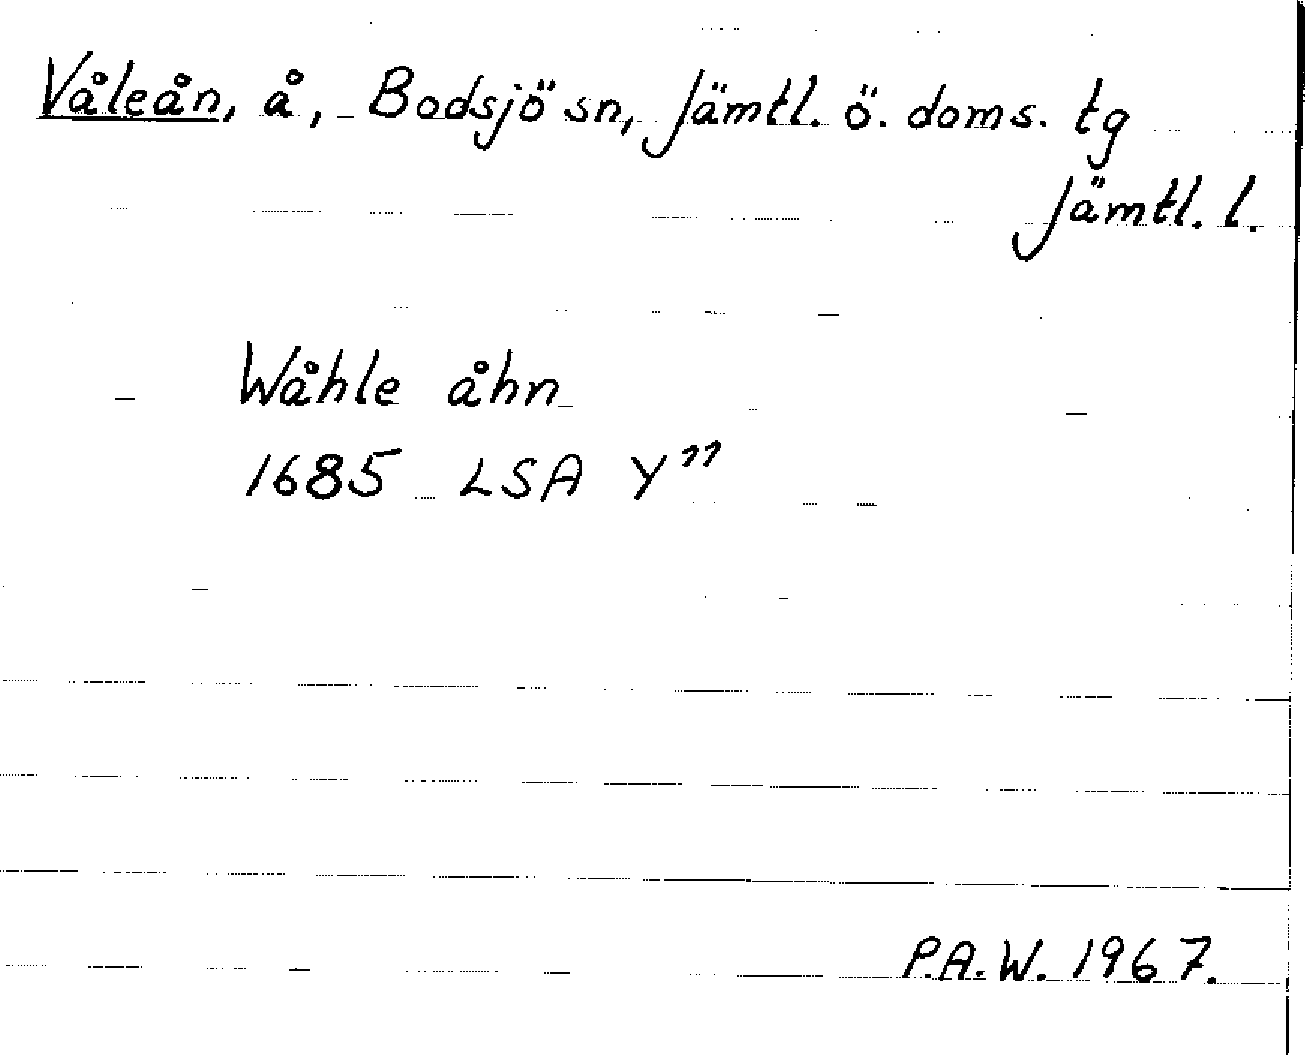 Våleån, å, Bodsjö sn, Jämtl. ö. doms. tg
Jämtl. l.
Wåhle åhn
1685 LSA Y"
P.A.W. 1967.